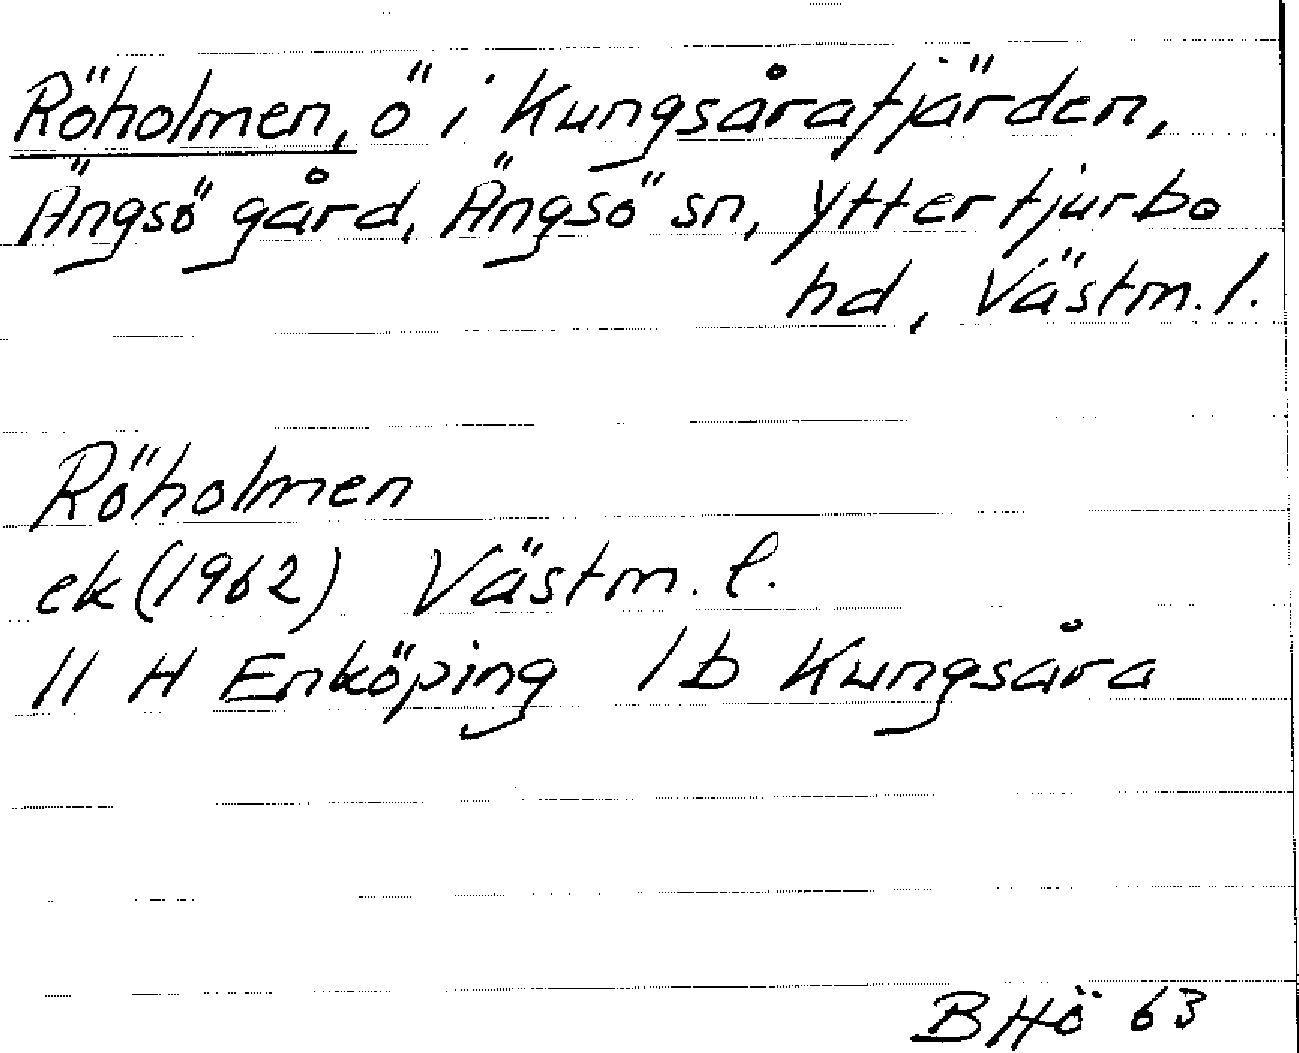 Röholmen, ö i Kungsårafjärden,
Ängsö gård, Ängsö sn, Yttertjurbo
hd, Västm. l.
Röholmen
ek (1962) Västm. l.
11 H Enköping 1 b Kungsåra
BHö 63